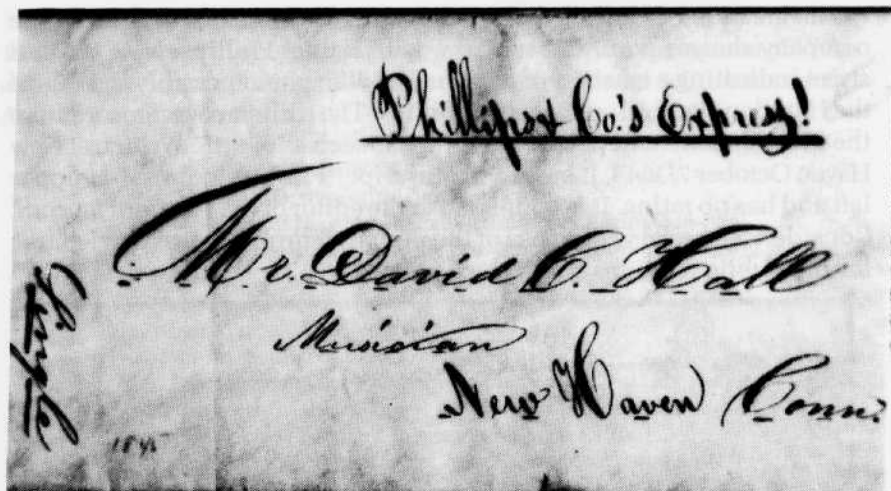 Phillips & Co.'s Express!
Mr. David C. Hall
Musician
New Haven Conn.
Single
1845